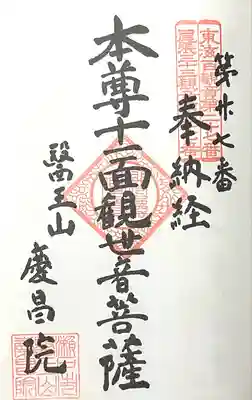 第廿七番
東海百観音第二十七番
尾張三十三観音
奉納経
本尊十一面観世音菩薩
醫王山
慶昌院